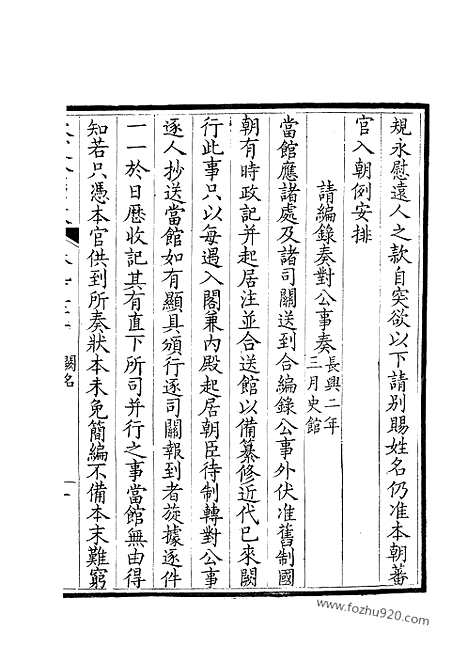 規永慰遠人之款自突欲以下請别賜姓名仍准本朝蕃
官入朝例安排
請編錄奏對公事奏長興二年三月史館
當館應諸處及諸司關送到合編錄公事外伏准舊制國
朝有時政記并起居注並合送館以備纂修近代已來闕
行此事只以每遇入閣兼内殿起居朝臣待制轉對公事
逐人抄送當館如有顯具頒行逐司關報到者旋據逐件
一一於日厯收記其有直下所司并行之事當館無由得
知若只憑本官供到所奏狀本未免簡編不備本末難窮
闕名
一
www.fozhu920.com